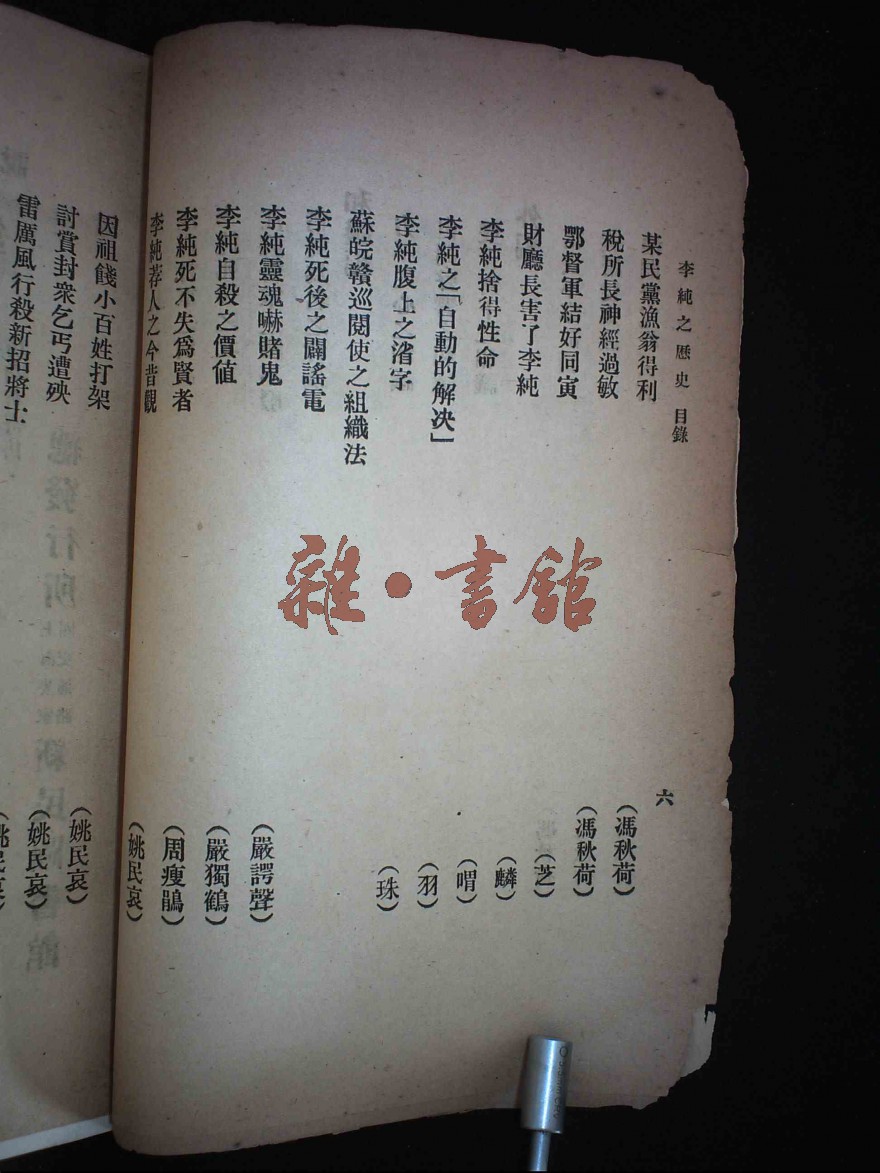 李純之歷史 目錄 六
某民黨漁翁得利 (馮秋荷)
稅所長神經過敏 (馮秋荷)
鄂督軍結好同寅 (芝)
財廳長害了李純 (麟)
李純捨得性命 (喟)
李純之「自動的解決」 (羽)
李純腹上之渻字 (珠)
蘇皖贛巡閱使之組織法
李純死後之闢謠電
李純靈魂嚇賭鬼 (嚴諤聲)
李純自殺之價值 (嚴獨鶴)
李純死不失爲賢者 (周瘦鵑)
李純荐人之今昔觀 (姚民哀)
因祖餞小百姓打架 (姚民哀)
討賞封衆乞丐遭殃 (姚民哀)
雷厲風行殺新招將士
雜·書館